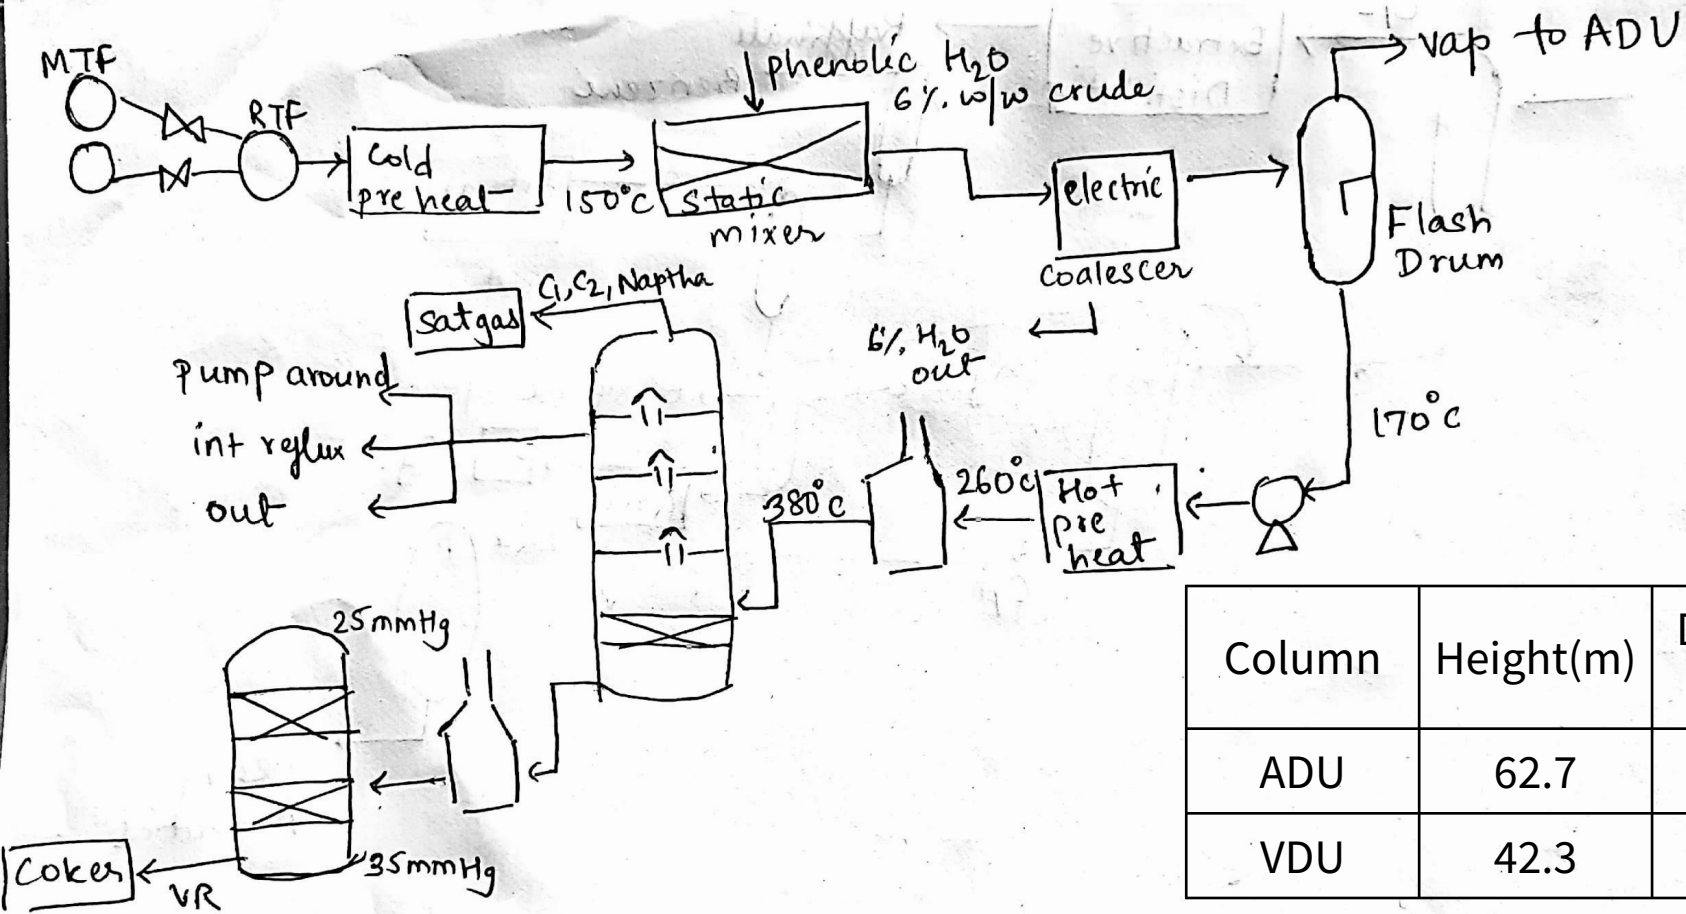 MTF
RTF
Cold
pre heat
150°C
phenolic H2O
6% w/w crude
static
mixer
electric
coalescer
6% H2O
out
vap to ADU
Flash
Drum
170°C
Hot
pre
heat
260°C
380°C
C1, C2, Naptha
sat gas
pump around
int reflux
out
25mmHg
35mmHg
VR
Coker
Column Height(m)
ADU 62.7
VDU 42.3